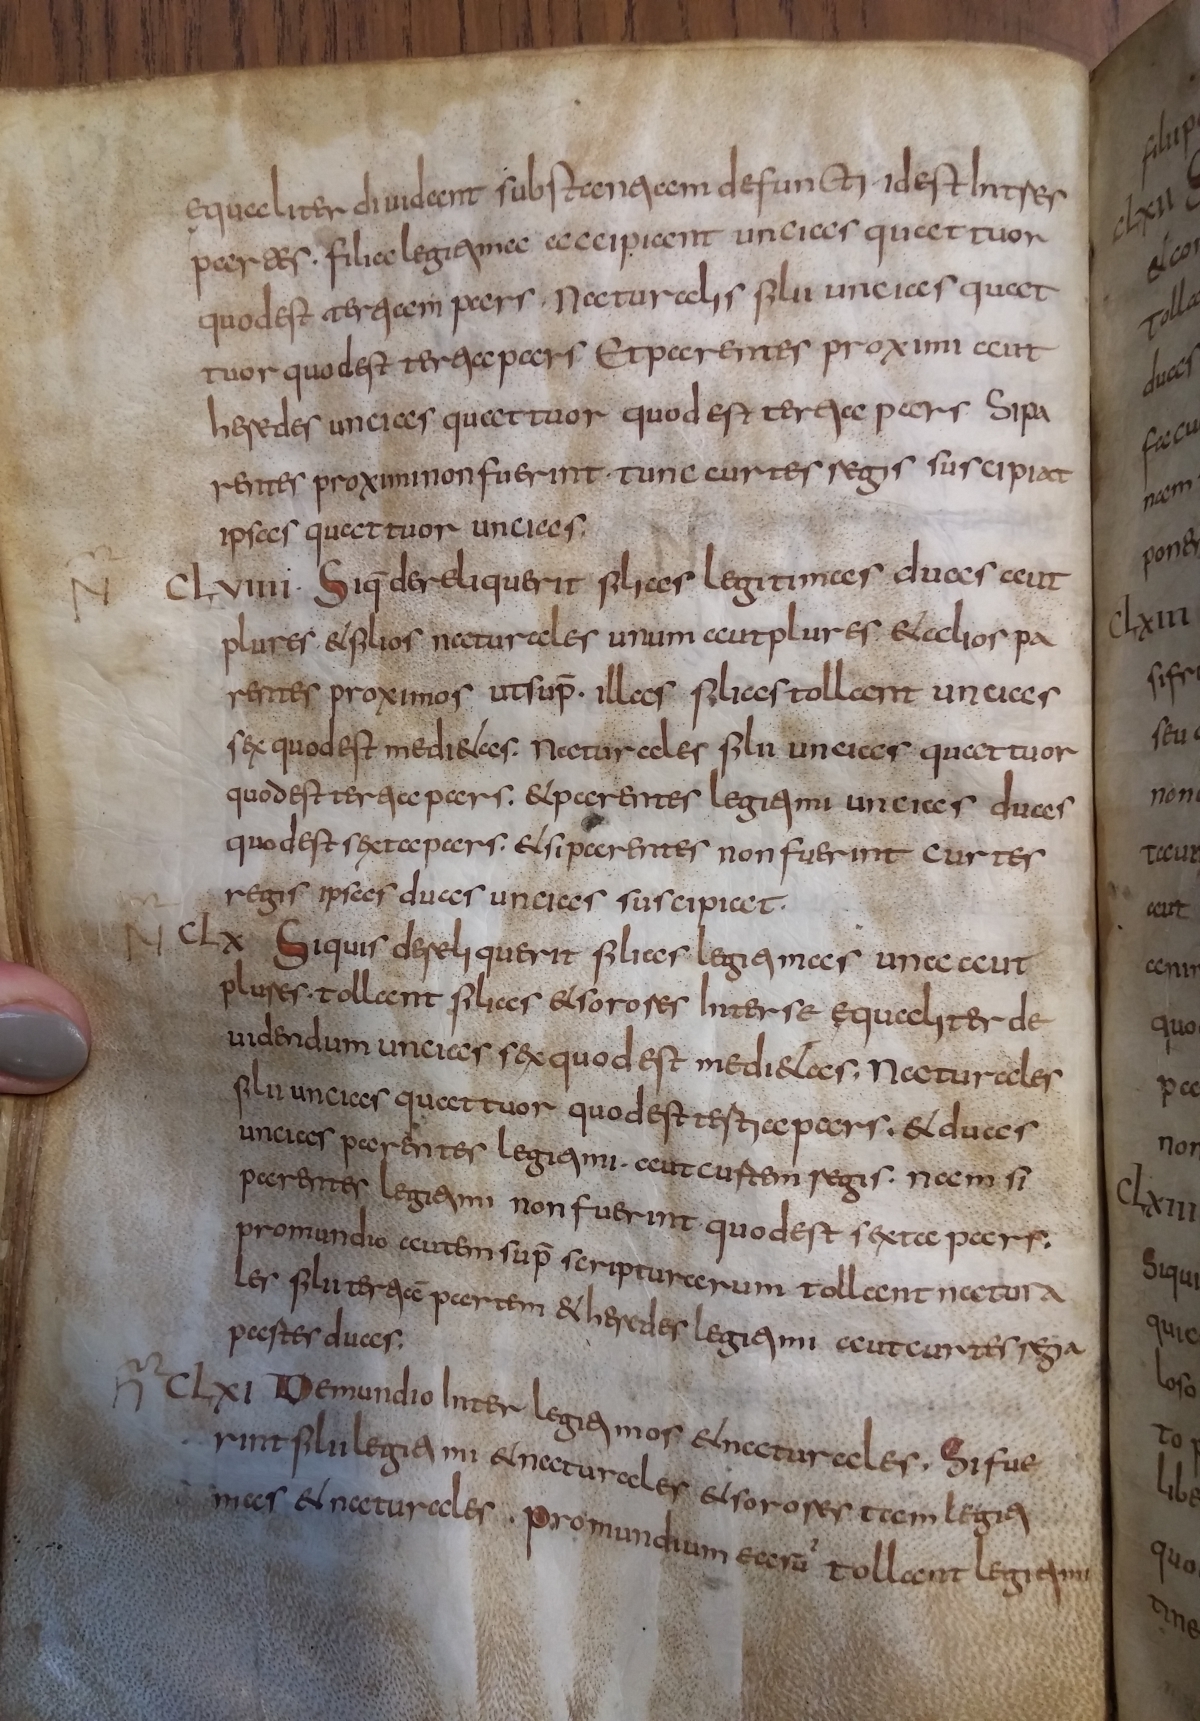 equaliter diuidant substantiam defuncti · idest Inter
pares · filia legitima accipiant uncias quattuor
quodest tertiam pars · Naturalis filii uncias quat
tuor quodest tertia pars Et parentes proximi aut
heredes uncias quattuor quod est tertia pars Sipa
rentes proximi non fuerint · tunc curtes regis suscipiat
ipsas quattuor uncias.
N CLVIIII · Siq̄ dereliquerit filias legitimas duas aut
plures & filios naturales unum aut plures & alios pa
rentes proximos utsup̄ · illas filias tollant uncias
sex quodest medi&as. Naturales filii uncias quattuor
quodest tertia pars. & parentes legitimi uncias duas
quodest sexta pars. & si parentes non fuerint curtes
regis ipsas duas uncias suscipiat.
N CLX Siquis dereliquerit filias legitimas una aut
plures · tollant filias & sorores Inter se equaliter de
uidendum uncias sex quod est medi&as. Naturales
filii uncias quattuor quodest tertia pars. & duas
uncias parentes legitimi · aut curtem regis. nam si
parentes legitimi non fuerint quodest sexta pars.
promundio autem sup̄ scripturarum tollant natura
les filii tertiā partem & heredes legitimi aut curtes regia
partes duas.
CLXI Demundio Inter legitimos & naturales. Si fue
rint filii legitimi & naturales & sorores tam legiti
mas & naturales. promundium earū tollant legitimi
filu
CLXII S
& con
tolla
duas
facu
nam
poner
CLXIII
sifr
seu
non
tatur
aut
quo
pa
non
CLXIII
Siqui
quic
loso
to p
libe
quo
tine